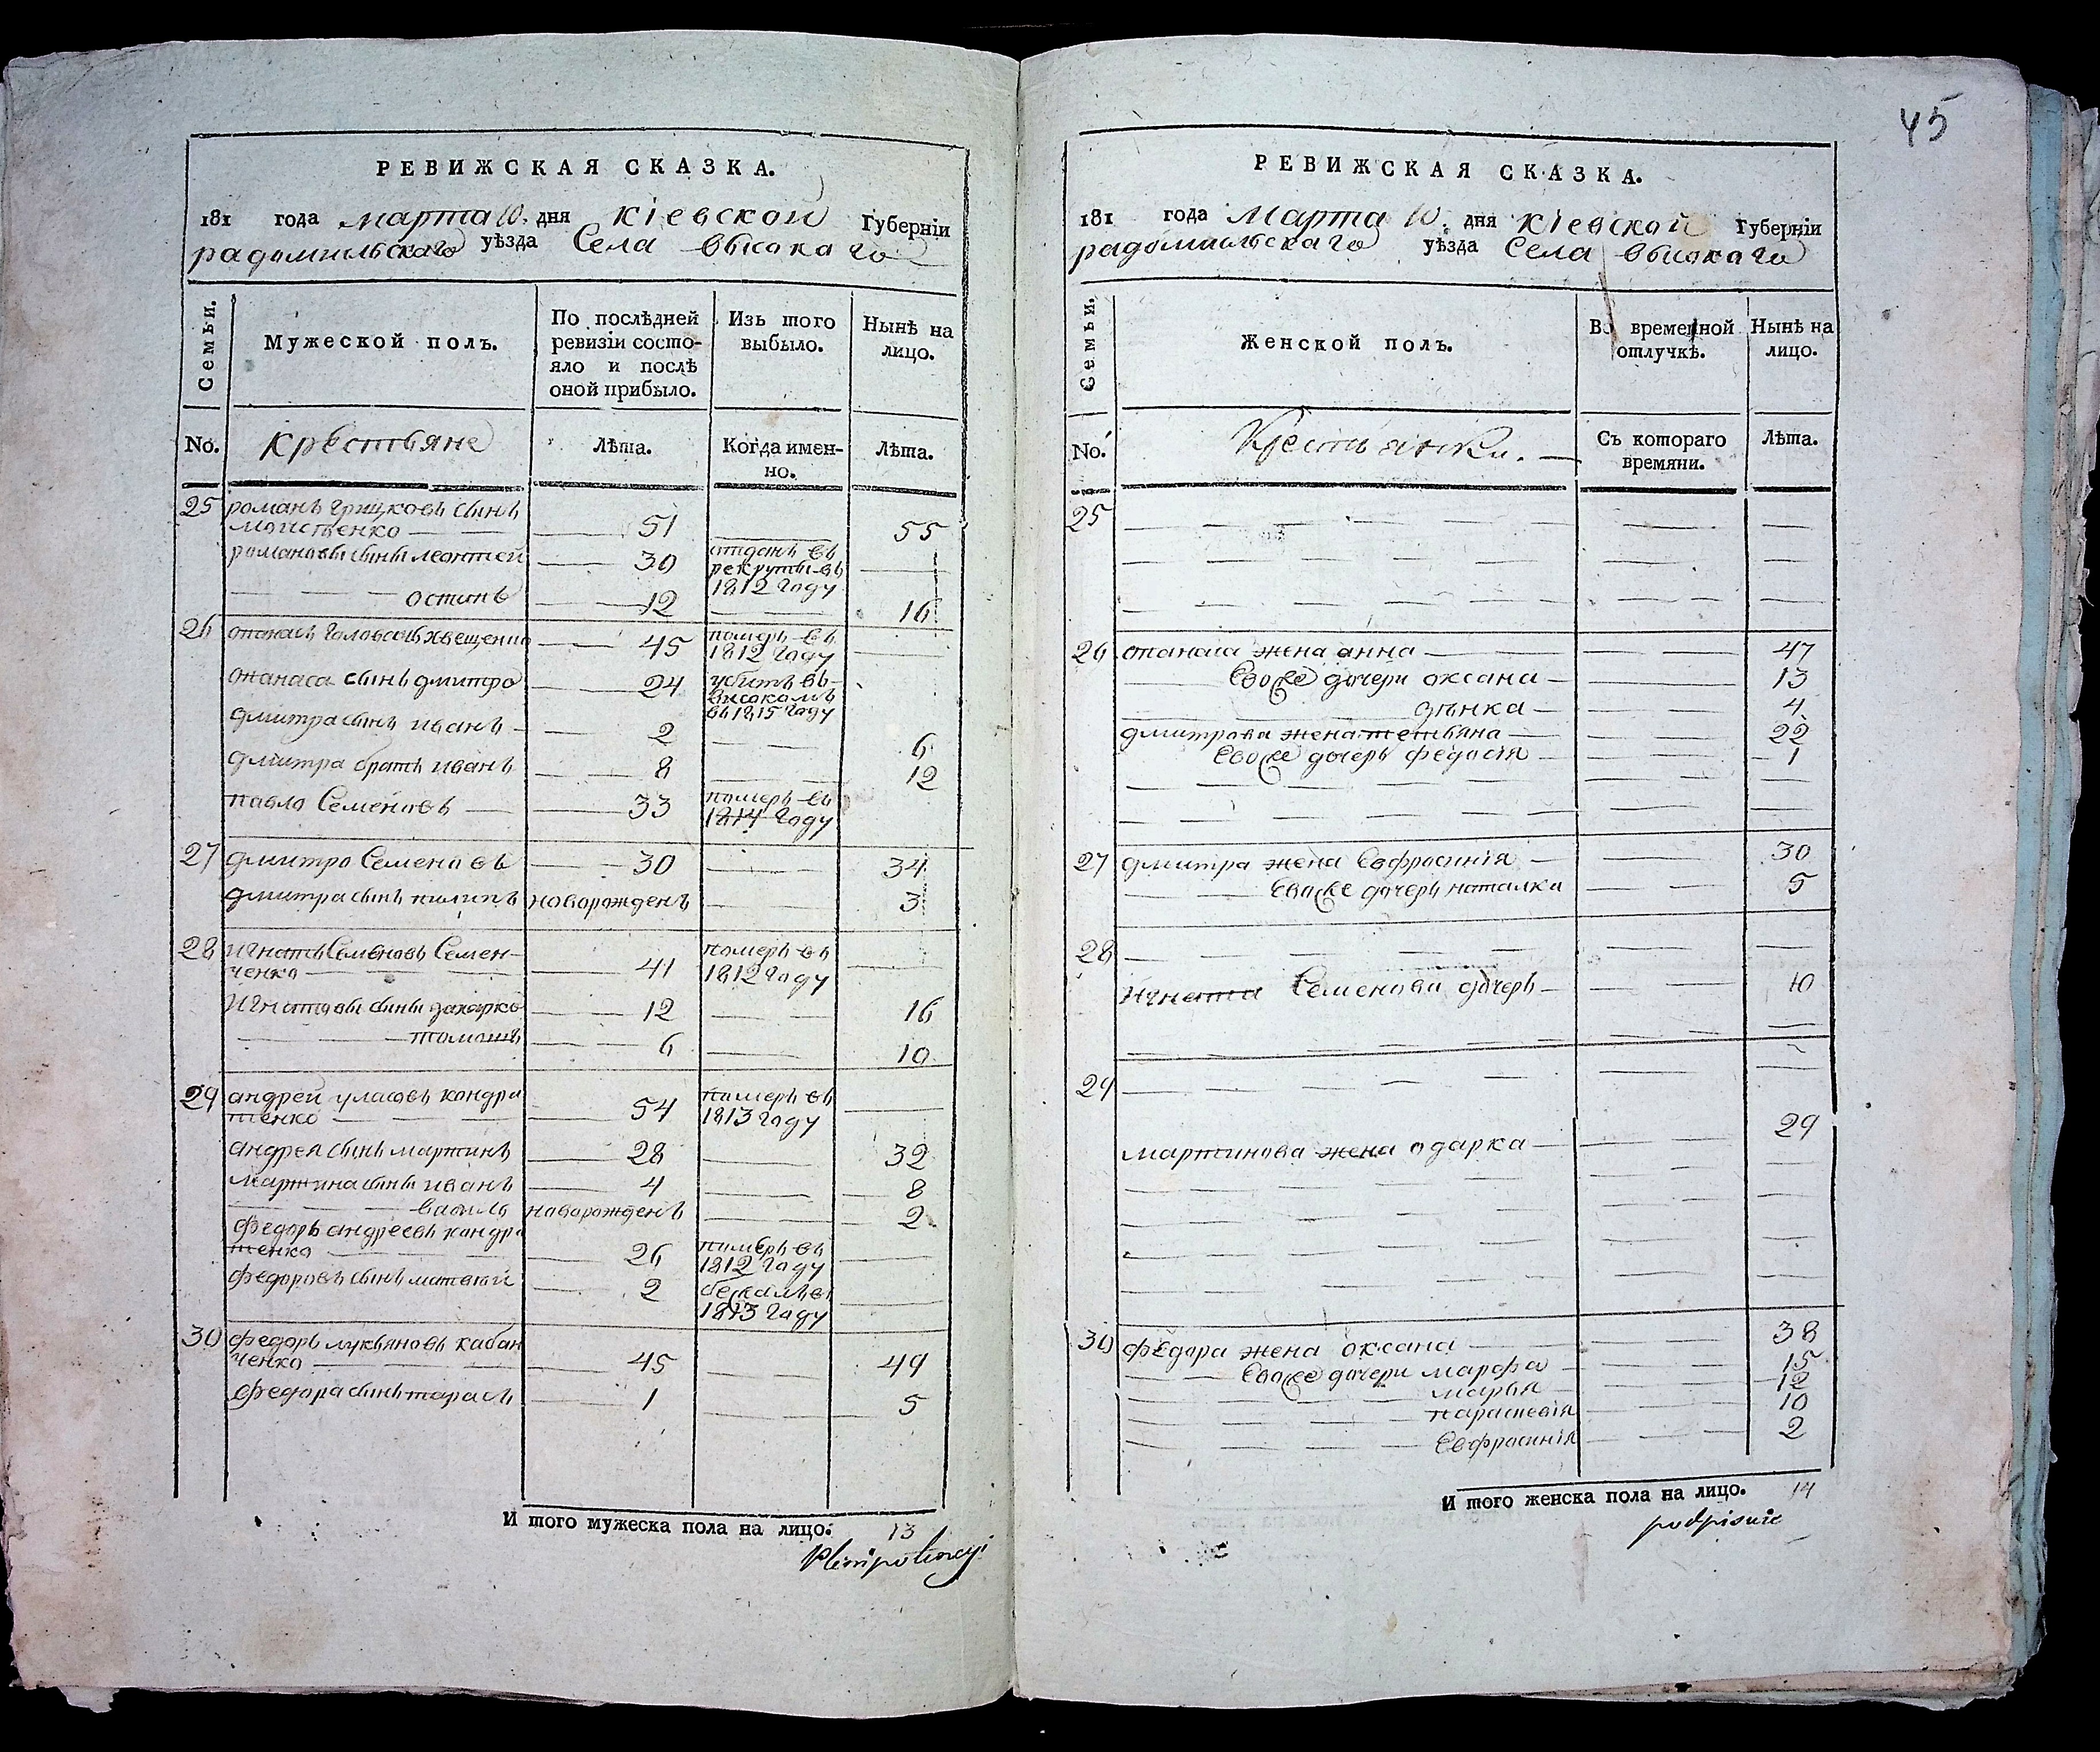 45
РЕВИЖСКАЯ СКАЗКА.
181 года марта 10. дня кіевской Губерніи
радомильскаго уѣзда Села высокаго
Семьи.
Мужеской полъ.
По послѣдней ревизіи состо-
яло и послѣ
оной прибыло.
Изъ того
выбыло.
Нынѣ на
лицо.
No. крестьяне Лѣта. Когда имен-
но. Лѣта.
25 романъ грицковъ сынъ
51 55
романовы сыны леонтей 30 отданъ въ
рекруты въ
1812 году
остапъ 12 16
26 опанасъ 45 померъ въ
1812 году
опанаса сынъ дмитро 24 убитъ въ
високомъ
въ 1815 году
дмитра сынъ иванъ 2 6
дмитра братъ иванъ 8 12
павло Семеновъ 33 померъ въ
1814 году
27 дмитро Семеновъ 30 34
дмитра сынъ пилипъ новорожденъ 3
28 игнатъ Семеновъ Семен-
ченко 41 померъ въ
1812 году
игнатовы сыны захарко 12 16
томашъ 6 10
29 андрей уласовъ кондра
тенко 54 померъ въ
1813 году
андрея сынъ мартинъ 28 32
мартина сыны иванъ 4 8
василь новорожденъ 2
федоръ андреевъ кондра
тенко 26 померъ въ
1812 году
федоровъ сынъ матвій 2
1813 году
30 федоръ лукьяновъ кабан
ченко 45 49
федора сынъ тарасъ 1 5
И того мужеска пола на лицо: 13
Plenipotencyi
РЕВИЖСКАЯ СКАЗКА.
181 года марта 10. дня кіевской Губерніи
радомильскаго уѣзда Села высокаго
Семьи.
Женской полъ.
Во временной
отлучкѣ.
Нынѣ на
лицо.
No. Крестьянки. Съ котораго
времяни. Лѣта.
25
26 опанаса жена анна 47
Его же дочери оксана 13
4
дмитрова жена тетьяна 22
Его же дочерь федосія 1
27 дмитра жена Евфросинія 30
Его же дочерь наталка 5
28
игната Семенова дочерь 10
29
мартинова жена одарка 29
30 федора жена оксана 38
Его же дочери марфа 15
марья 12
параскевія 10
Евфросинія 2
И того женска пола на лицо. 14
podpisuie